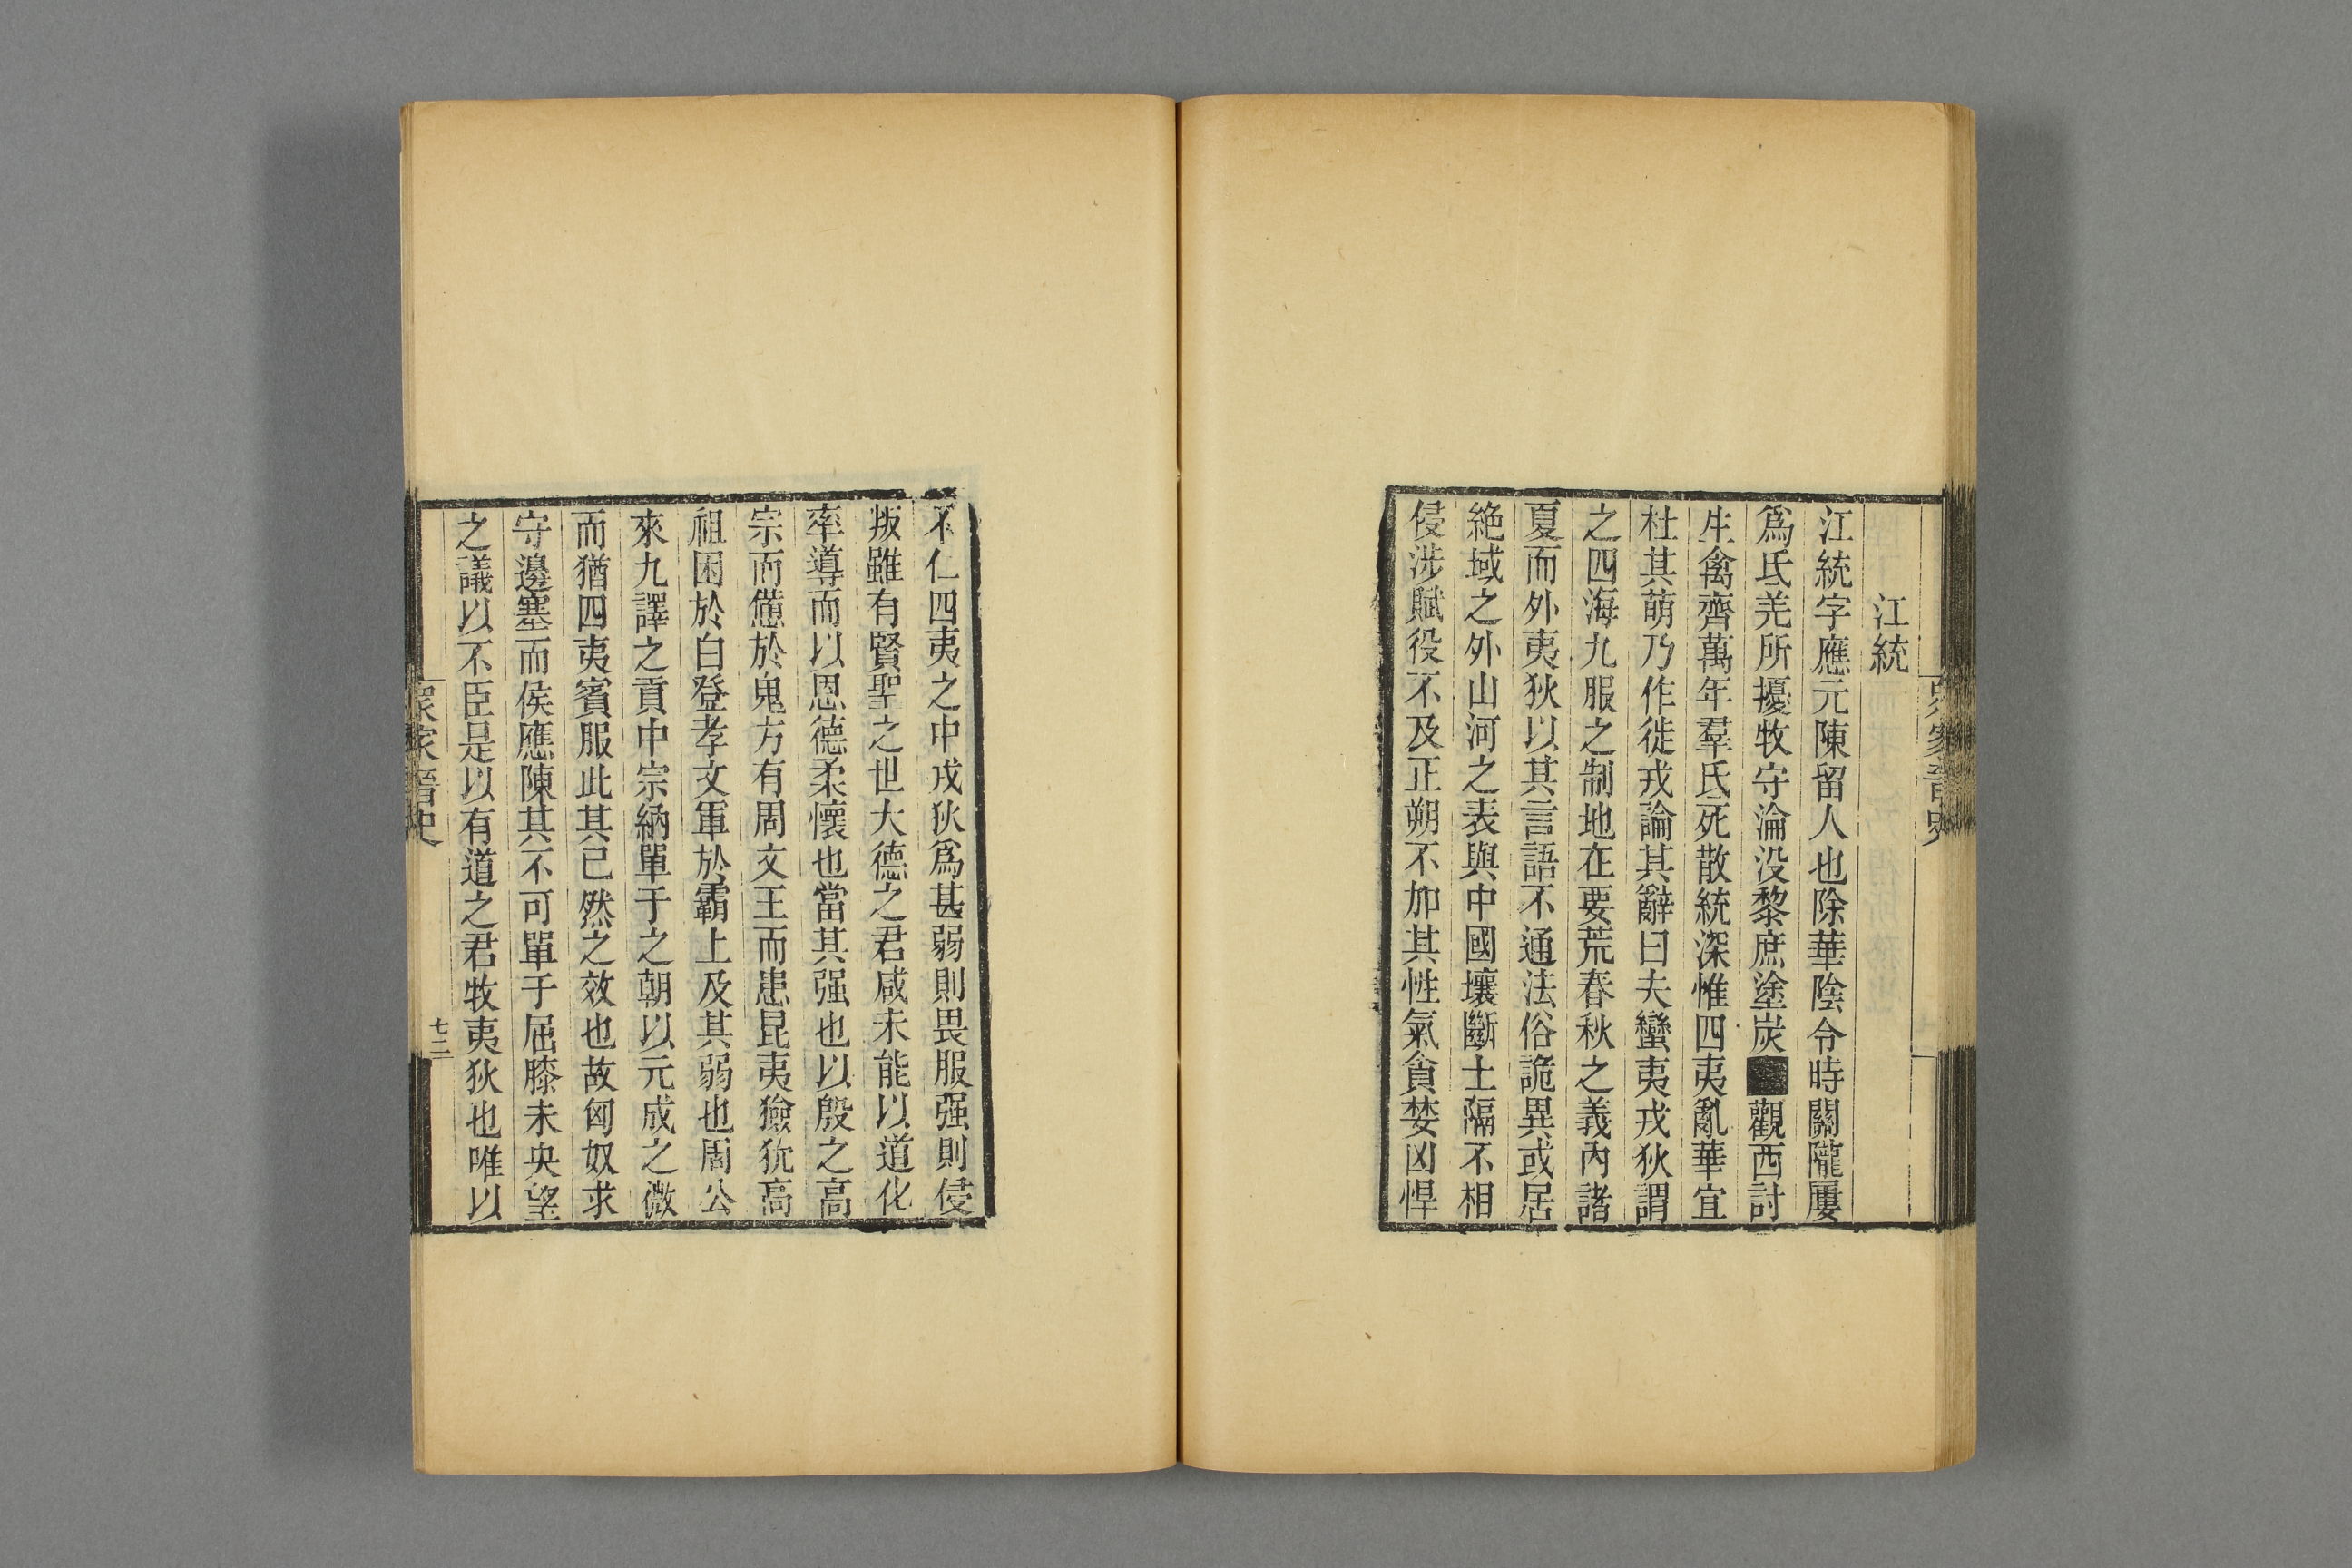 江統
江統字應元陳留人也除華陰令時關隴屢
爲氐羌所擾牧守淪没黎庶塗炭觀西討
生禽齊萬年羣氏死散統深惟四夷亂華宜
杜其萌乃作徙戎論其辭曰夫蠻夷戎狄謂
之四海九服之制地在要荒春秋之義內諸
夏而外夷狄以其言語不通法俗詭異或居
絶域之外山河之表與中國壤斷土隔不相
侵涉賦役不及正朔不加其性氣貪婪凶悍
不仁四夷之中戎狄爲甚弱則畏服强則侵
叛雖有賢聖之世大德之君咸未能以道化
率導而以恩德柔懷也當其强也以殷之高
宗而憊於鬼方有周文王而患昆夷獫狁高
祖困於白登孝文軍於霸上及其弱也周公
來九譯之貢中宗納單于之朝以元成之微
而猶四夷賓服此其已然之效也故匈奴求
守邊塞而侯應陳其不可單于屈膝未央望
之議以不臣是以有道之君牧夷狄也唯以
衆家晉史
七三